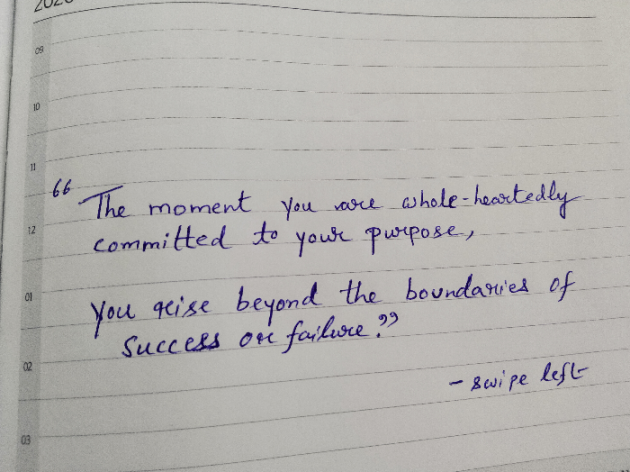 09
10
11
"The moment you are whole-heartedly
12
committed to your purpose,
01
you rise beyond the boundaries of
success or failure."
02
- swipe left
03